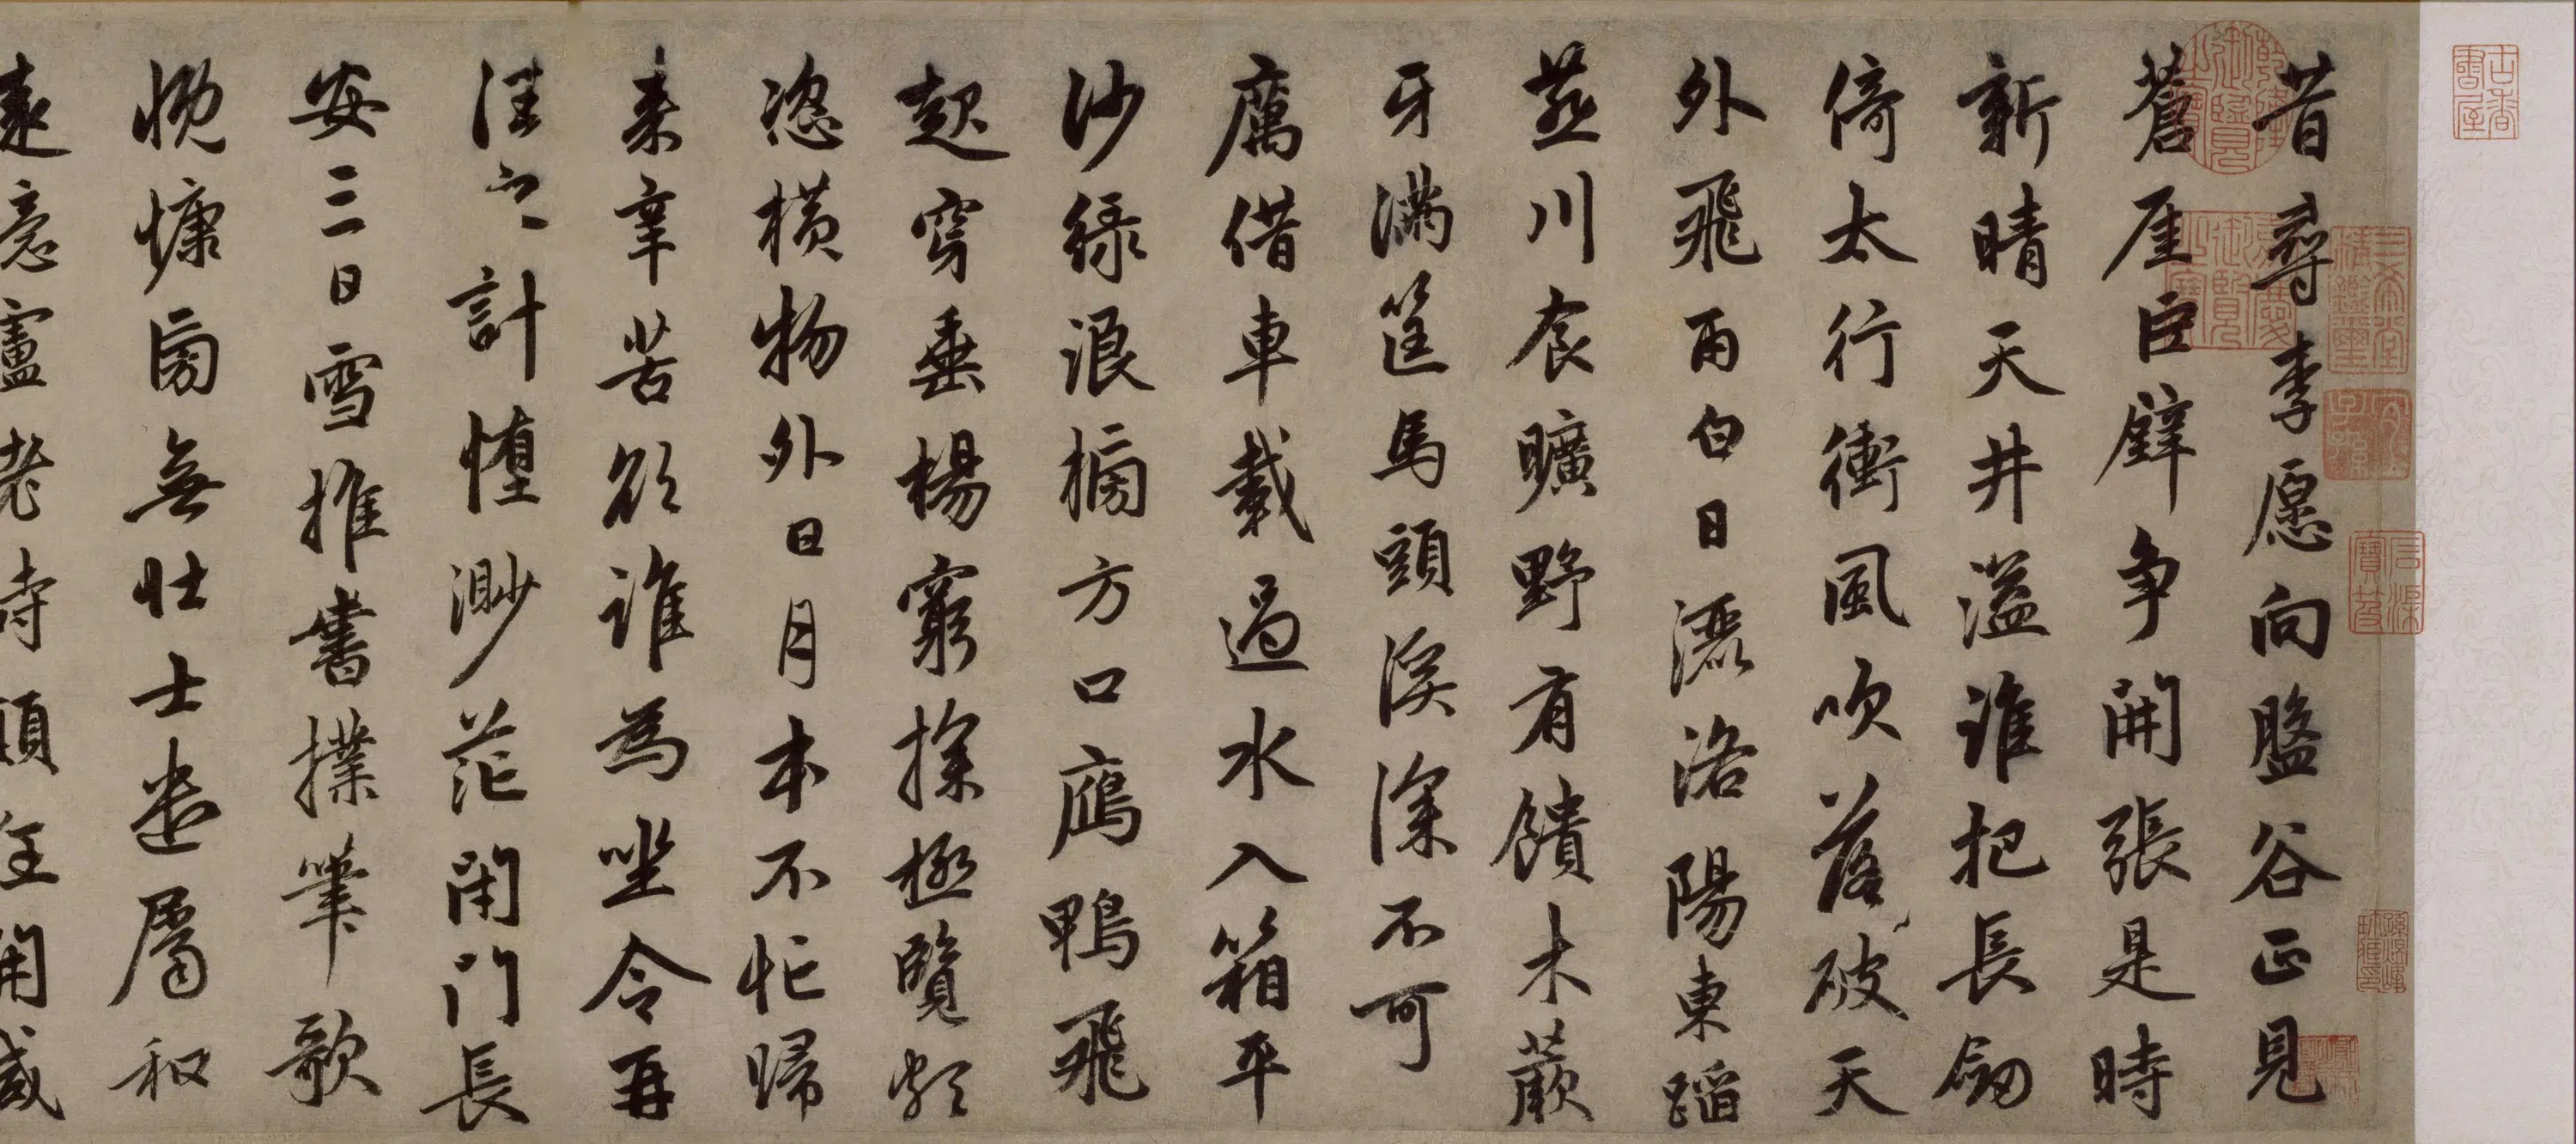 古香書屋
三希堂精鑑璽
宜子孫
昔尋李愿向盤谷正見
蒼崖巨壁争開張是時
新晴天井溢誰把長劒
倚太行衝風吹落破天
外飛雨白日灑洛陽東蹈
燕川食曠野有饋木蕨
牙滿筐馬頭溪深不可
厲借車載過水入箱平
沙綠浪榜方口鴈鴨飛
起穿垂楊窮探極覽頗
恣橫物外日月本不忙歸
来辛苦欲誰為坐令再
往之計墮渺茫閉門長
安三日雪推書撲筆歌
慨慷旁無壮士遣屬和
遠意盧老詩顛狂開緘